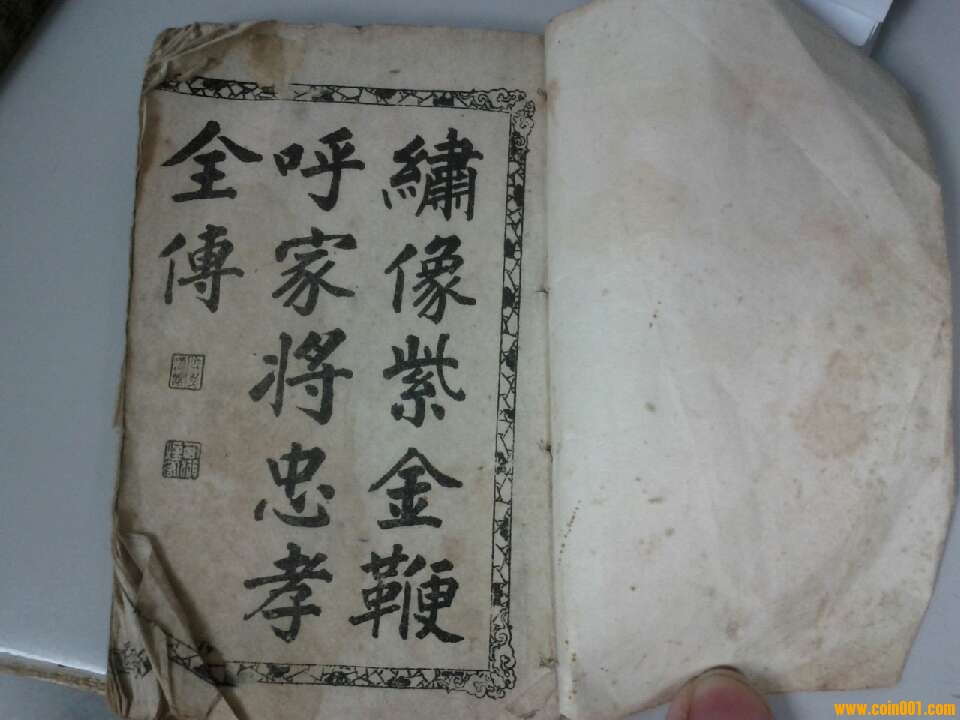 繡像紫金鞭
呼家將忠孝
全傳
www.coin001.com